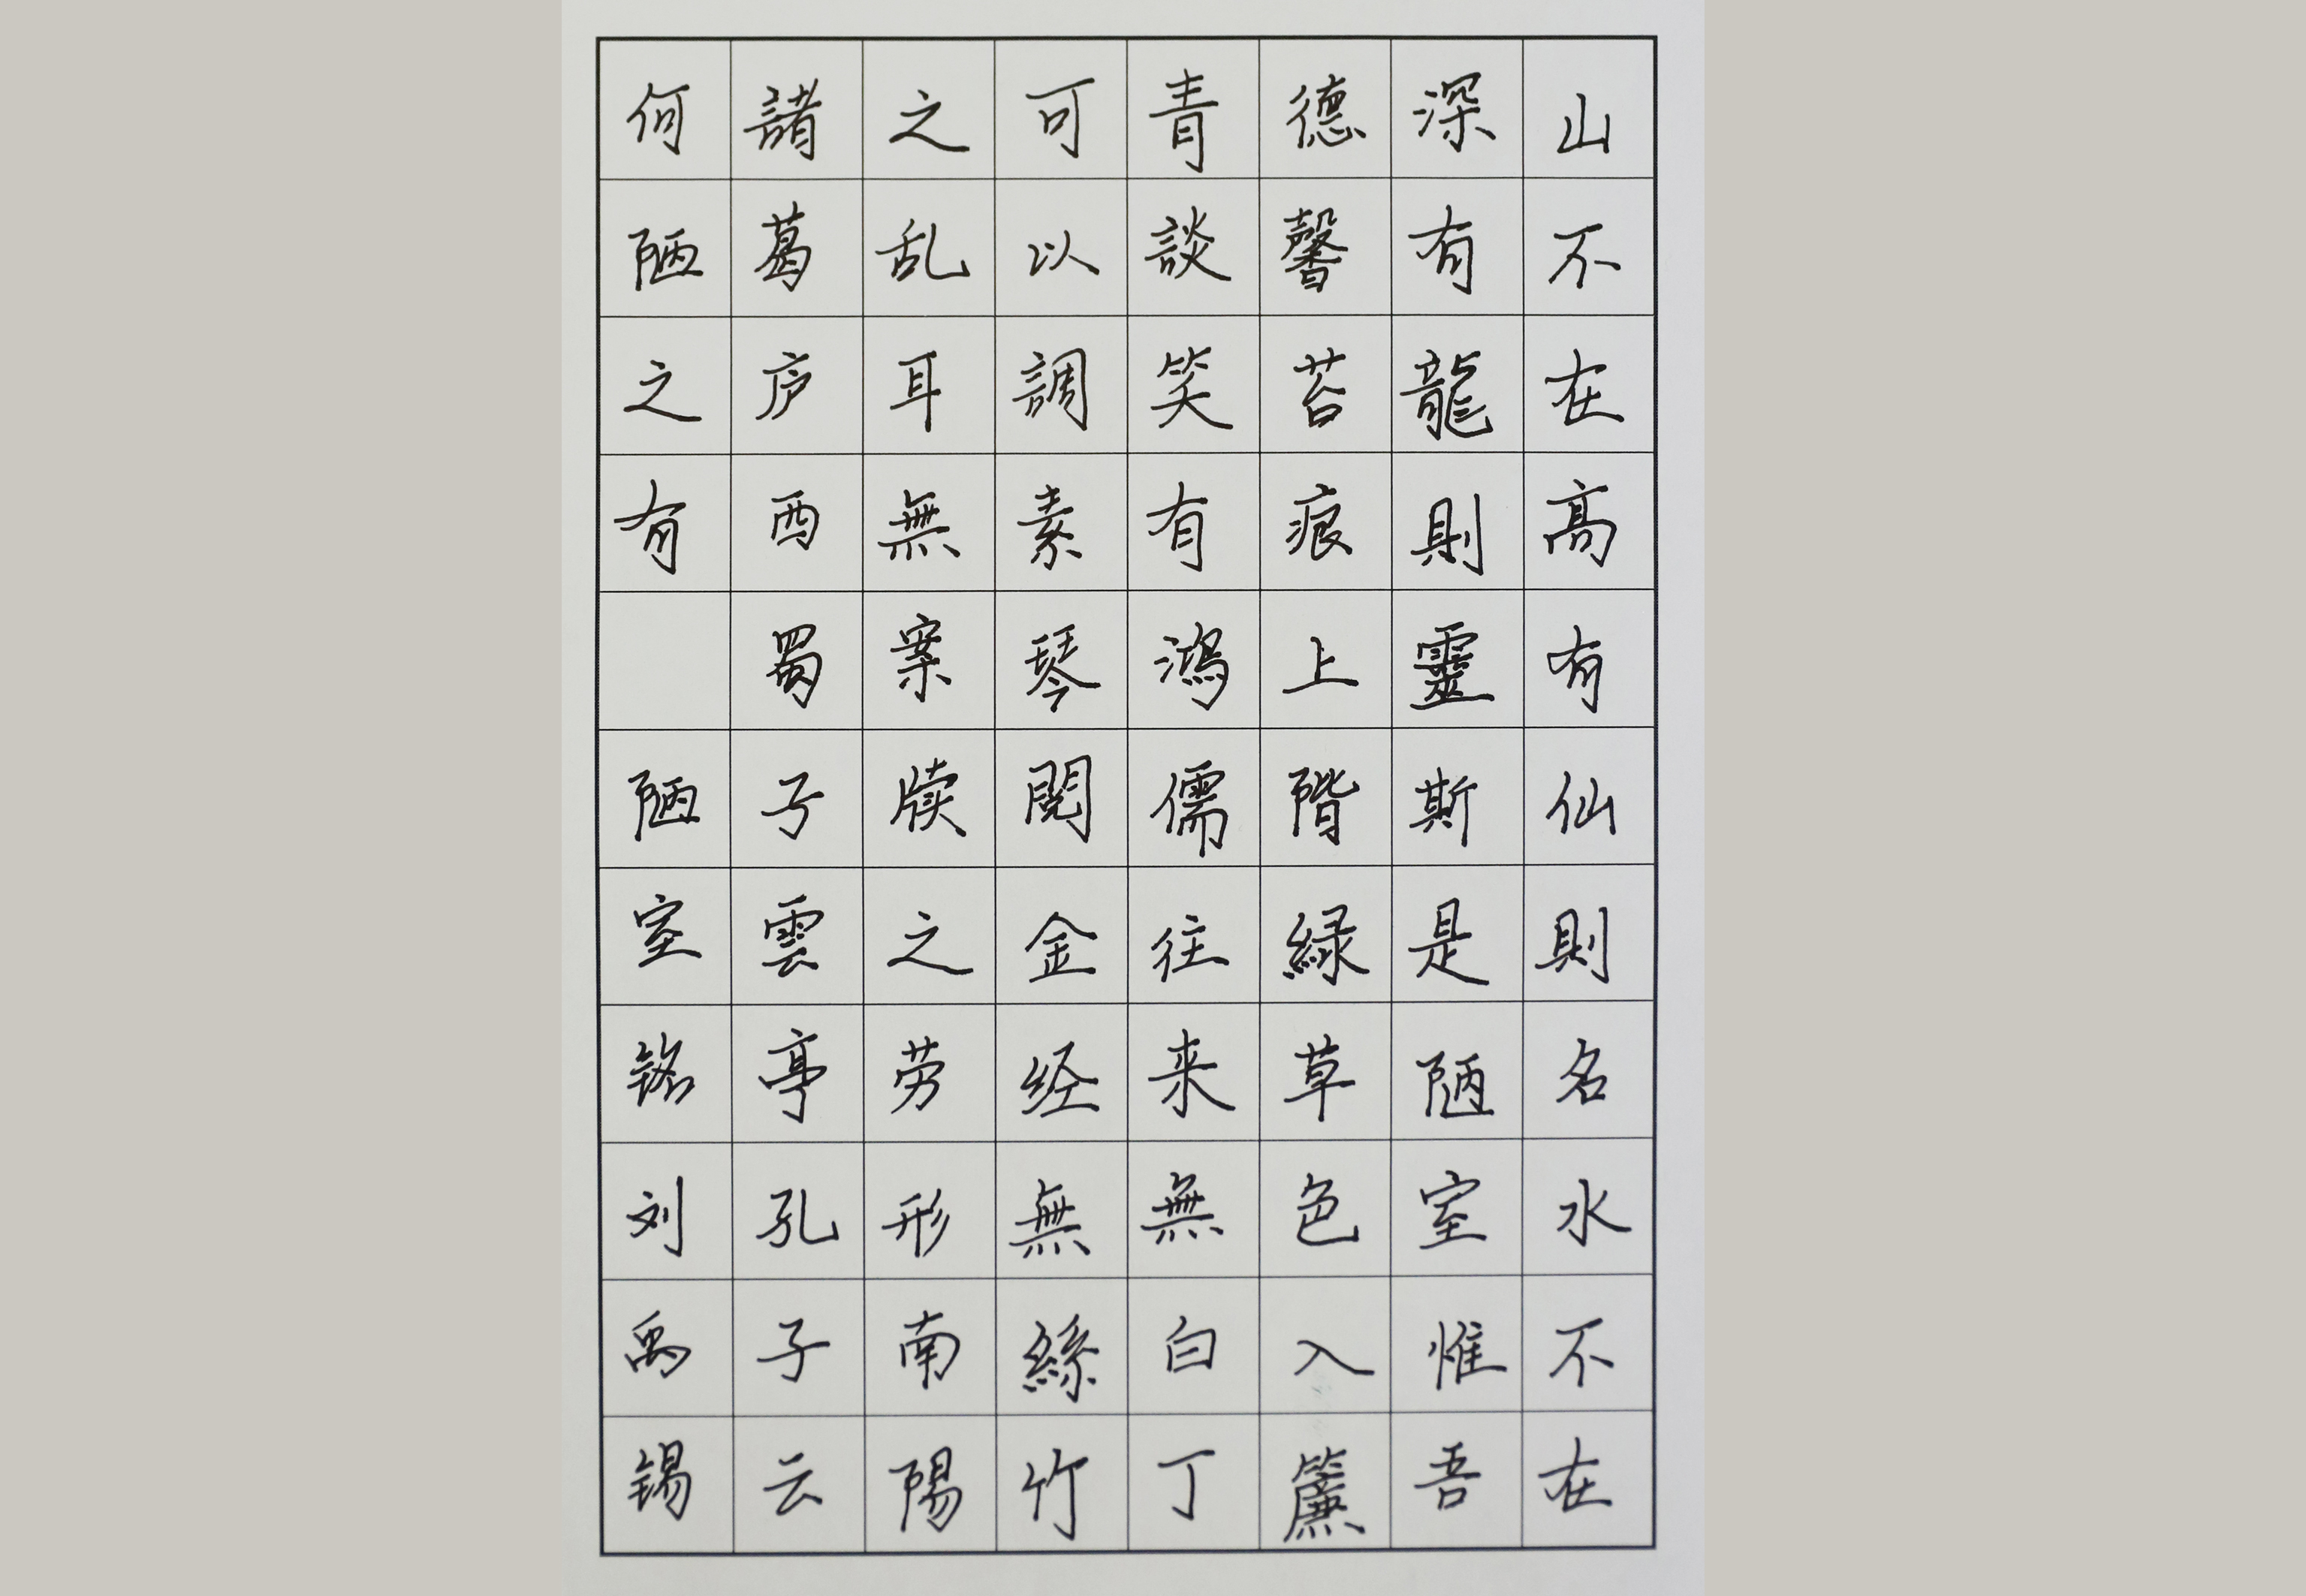 山不在高有仙則名水不在
深有龍則靈斯是陋室惟吾
德馨苔痕上階緑草色入簾
青談笑有鴻儒往来無白丁
可以調素琴閱金经無絲竹
之乱耳無案牍之劳形南陽
諸葛庐西蜀子雲亭孔子云
何陋之有 陋室铭刘禹锡